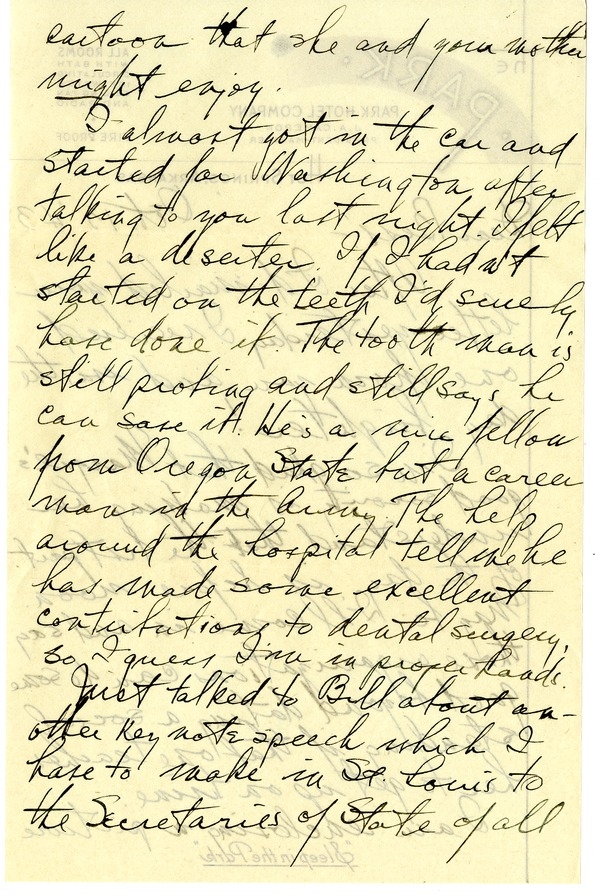 cartoon that she and your mother
might enjoy.
I almost got in the car and
started for Washington after
talking to you last night. I felt
like a deserter. If I hadn't
started on the teeth I'd surely
have done it. The tooth man is
still probing and still says he
can save it. He's a nice fellow
from Oregon State but a career
man in the Army. The help
around the hospital tell me he
has made some excellent
contributions to dental surgery,
so I guess I'm in proper hands.
Just talked to Bill about an-
other keynote speech which I
have to make in St. Louis to
the Secretaries of State of all
PARK
PARK HOTEL COMPANY
"Sleep in the Park"